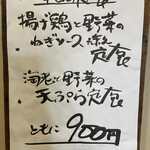 定食
揚げ鶏と野菜の
ねぎソース
定食
海老と野菜の
天ぷら定食
ともに900円